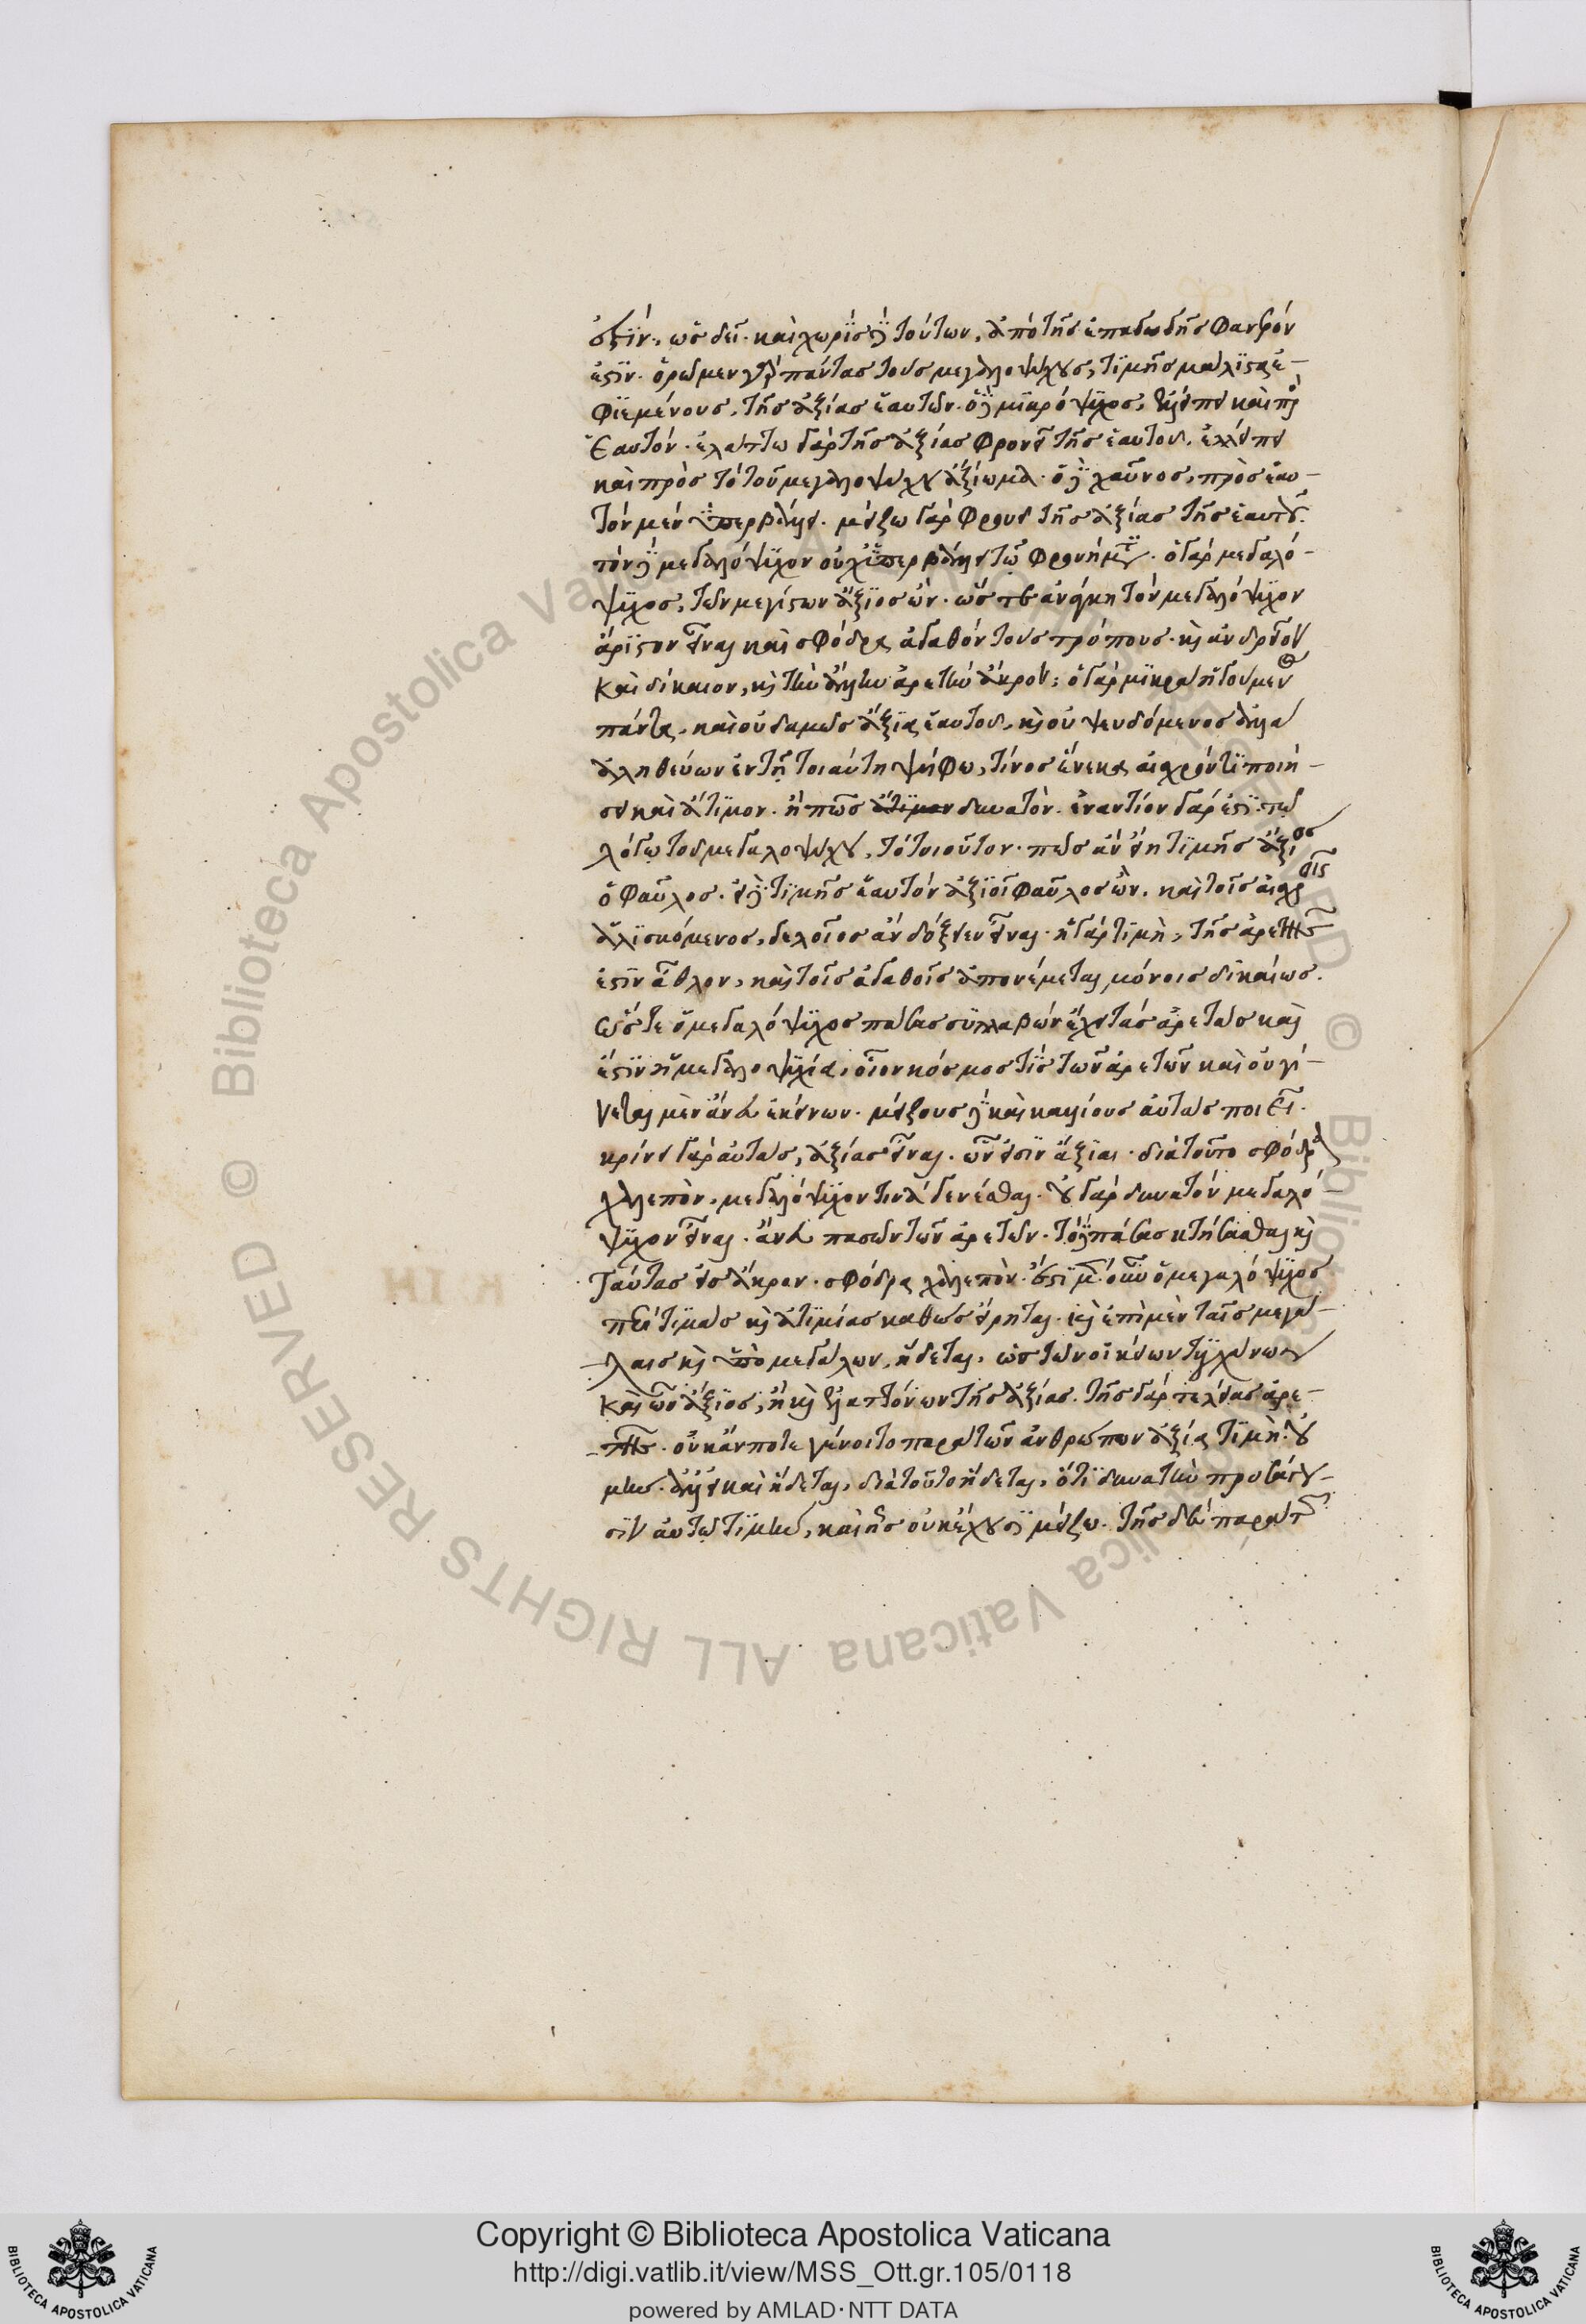 ἐστίν, ὡς δεῖ. καὶ χωρὶς δὲ τούτων, ἀπὸ τῆς ἐπαγωγῆς φανερόν
ἐστιν. ὁρῶμεν γὰρ πάντας τοὺς μεγαλοψύχους, τιμῆς μάλιστα ἐ-
φιεμένους, τῆς ἀξίας ἑαυτῶν. ὁ δὲ μικρόψυχος, ἐλλείπει καὶ πρὸς
ἑαυτόν. ἐλάττω γὰρ τῆς ἀξίας φρονεῖ τῆς ἑαυτοῦ. ἐλλείπει
καὶ πρὸς τὸ τοῦ μεγαλοψύχου ἀξίωμα. ὁ δὲ χαῦνος, πρὸς ἑαυ-
τὸν μὲν ὑπερβάλλει. μείζω γὰρ φρονεῖ τῆς ἀξίας τῆς ἑαυτοῦ.
τὸν δὲ μεγαλόψυχον οὐχ ὑπερβάλλει τῷ φρονήματι. ὁ γὰρ μεγαλό-
ψυχος, τῶν μεγίστων ἄξιος ὤν. ὥστε ἀνάγκη τὸν μεγαλόψυχον
ἄριστον εἶναι καὶ σφόδρα ἀγαθὸν τοὺς τρόπους. καὶ ἀνδρεῖον
καὶ δίκαιον, καὶ τὴν ἄλλην ἀρετὴν ἄκρον; ὁ γὰρ μικρὰ ἡγούμενος
πάντα, καὶ οὐδαμῶς ἄξια ἑαυτοῦ, καὶ οὐ ψευδόμενος ἀλλὰ
ἀληθεύων ἐν τῇ τοιαύτῃ ψήφῳ, τίνος ἕνεκα αἰσχρόν τι ποιή-
σει καὶ ἄτιμον. ἢ πῶς ἄτιμον δυνατόν. ἐναντίον γάρ ἐστι τῷ
λόγῳ τοῦ μεγαλοψύχου, τὸ τοιοῦτον. πῶς ἂν εἴη τιμῆς ἄξιος
ὁ φαῦλος. εἰ δὲ τιμῆς ἑαυτὸν ἀξιοῖ φαῦλος ὤν, καὶ τοῖς αἰσχροῖς
ἁλισκόμενος, γελοῖος ἂν δόξειεν εἶναι. ἡ γὰρ τιμὴ, τῆς ἀρετῆς
ἐστιν ἆθλον, καὶ τοῖς ἀγαθοῖς ἀπονέμεται μόνοις δικαίως.
ὥστε ὁ μεγαλόψυχος πάσας συλλαβὼν ἔχει τὰς ἀρετὰς καὶ
ἔστιν ἡ μεγαλοψυχία, οἷον κόσμος τις τῶν ἀρετῶν καὶ οὐ γί-
νεται μὲν ἄνευ ἐκείνων. μείζους δὲ καὶ καλλίους αὐτὰς ποιεῖ.
κρίνει γὰρ αὐτὰς, ἀξίας εἶναι. ὧν εἰσιν ἄξιαι. διὰ τοῦτο σφόδρα
χαλεπὸν, μεγαλόψυχον τινὰ γενέσθαι. οὐ γὰρ δυνατὸν μεγαλό-
ψυχον εἶναι. ἄνευ πασῶν τῶν ἀρετῶν. τὸ δὲ πάσας κτήσασθαι καὶ
ταύτας εἰς ἄκρον. σφόδρα χαλεπόν. ἔστι μὲν οὖν ὁ μεγαλόψυχος
περὶ τιμὰς καὶ ἀτιμίας καθὼς εἴρηται. καὶ ἐπὶ μὲν ταῖς μεγά-
λαις καὶ ὑπὸ μεγάλων, ἥδεται, ὡς τῶν οἰκείων τυγχάνων
καὶ ὧν ἄξιος, ἢ καὶ ἐλαττόνων τῆς ἀξίας. τῆς γὰρ τελείας ἀρε-
τῆς. οὐκ ἄν ποτε γένοιτο παρὰ τῶν ἀνθρώπων ἀξία τιμή. οὐ
μὴν. ἀλλ' εἰ καὶ ἥδεται, διὰ τοῦτο ἥδεται, ὅτι δυνατὴν προσάγου-
σιν αὐτῷ τιμὴν, καὶ ἧς οὐκ ἔχουσι μείζω. τῆς δὲ παρὰ τ